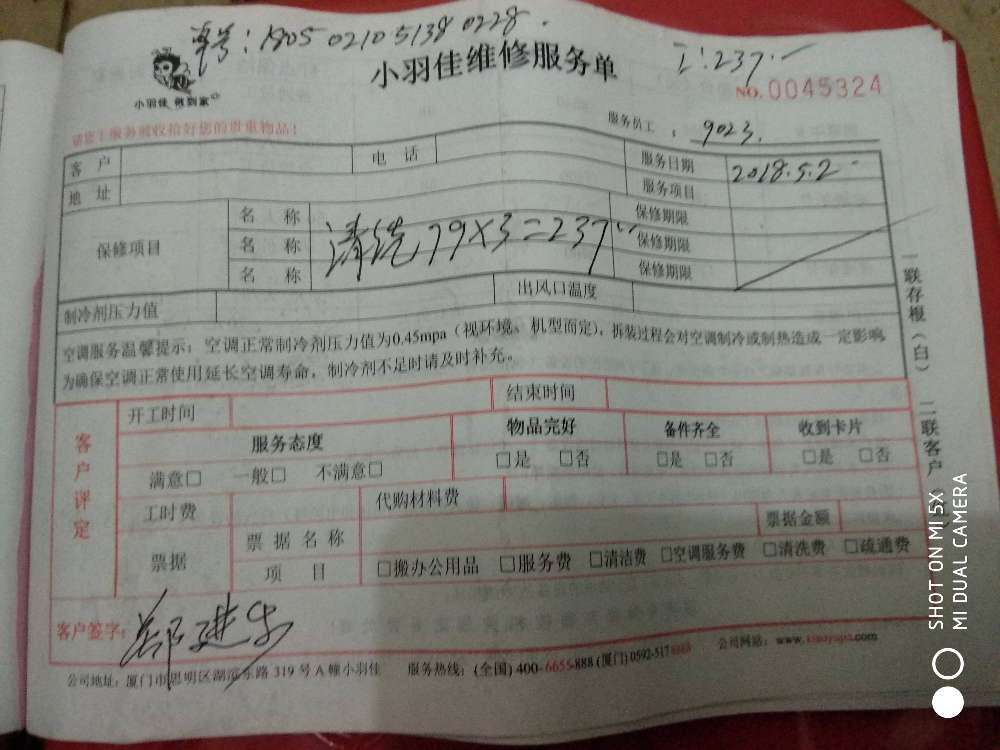 单号：180502105138 0228.
小羽佳维修服务单
I：237.—
小羽佳 做到家
NO.0045324
服务员工：9023.
客户 电话 服务日期 2018.5.2
地址 服务项目
保修项目 名称 保修期限
名称 清洗79X3=237 保修期限
名称 保修期限
制冷剂压力值 出风口温度
空调服务温馨提示：空调正常制冷剂压力值为0.45mpa（视环境、机型而定），拆装过程会对空调制冷或制热造成一定影响
为确保空调正常使用延长空调寿命，制冷剂不足时请及时补充。
一联存根（白） 二联客户
客户评定
开工时间 结束时间
服务态度 物品完好 备件齐全 收到卡片
满意□ 一般□ 不满意□ □是 □否 □是 □否 □是 □否
工时费 代购材料费
票据 票据名称 票据金额
项目 □搬办公用品 □服务费 □清洁费 □空调服务费 □清洗费 □疏通费
客户签字：
公司地址：厦门市思明区湖滨东路319号A幢小羽佳 服务热线：(全国)400-6655-888 (厦门)0592-517 公司网站：www.xiaoyujia.com
SHOT ON MI 5X
MI DUAL CAMERA